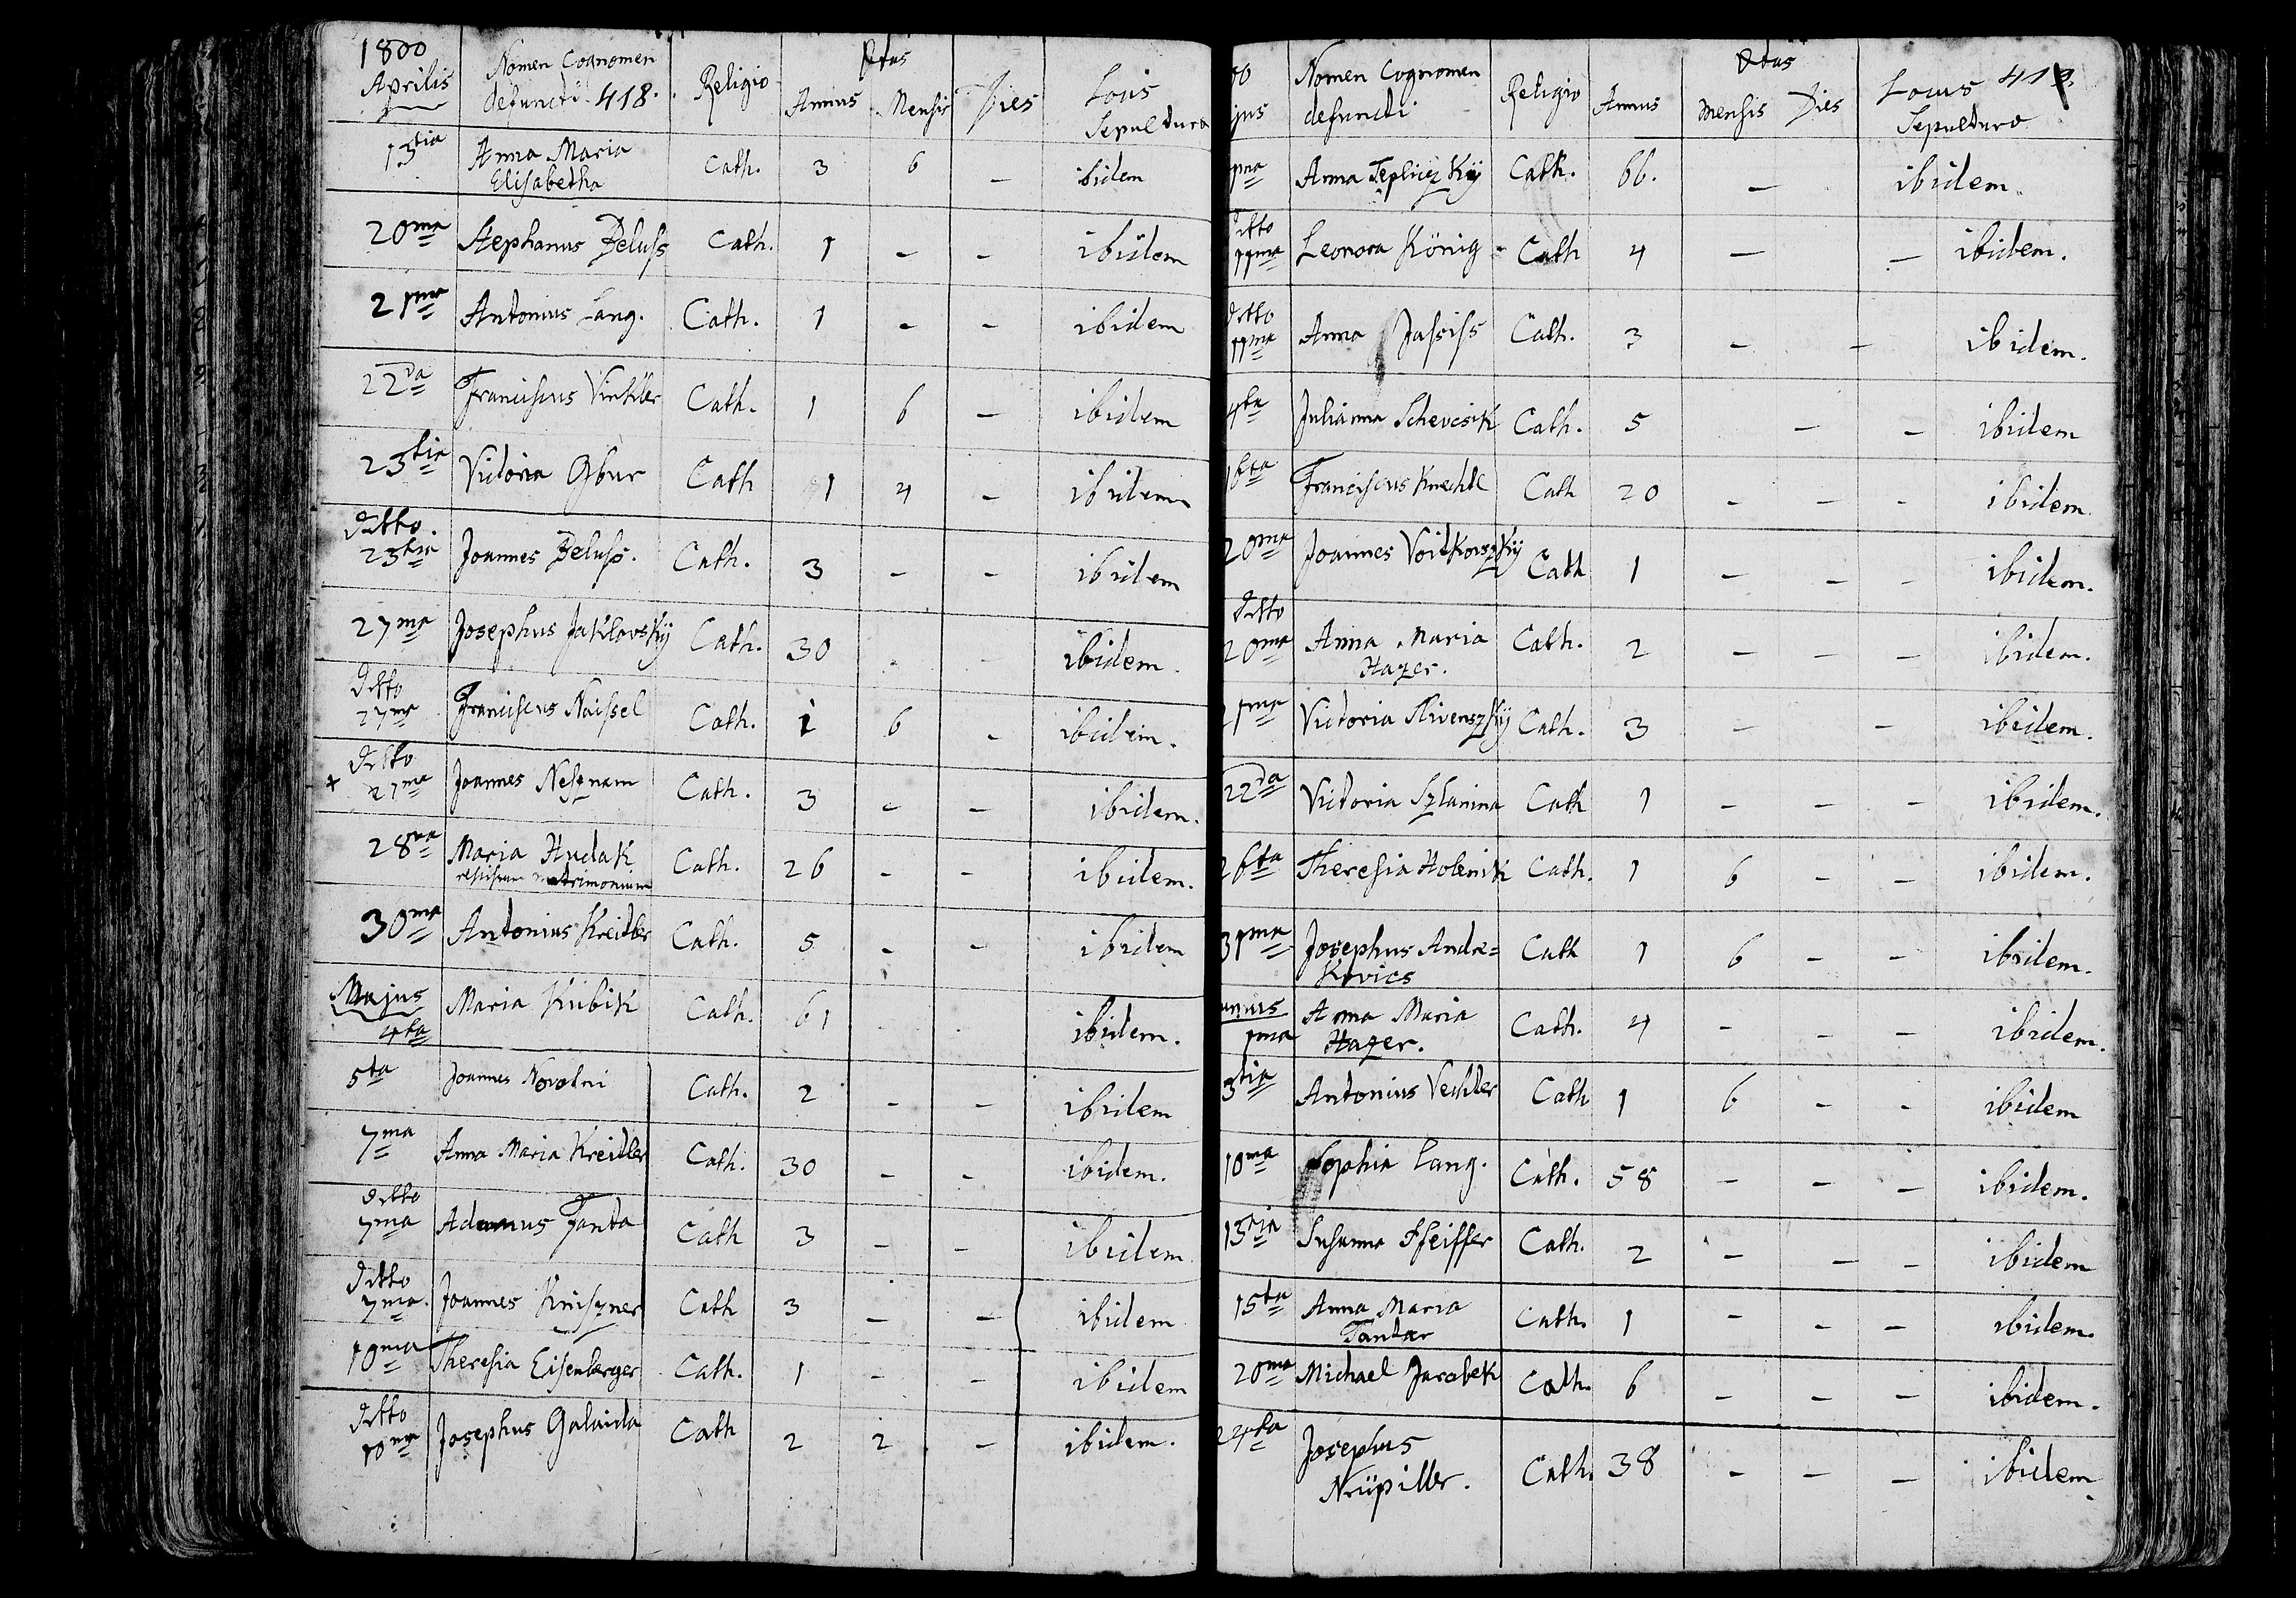 1800
Aprilis
Nomen Cognomen
defuncti 418.
Religio
Ætas
Annus Mensis Dies
Locus
Sepultura
13tia Anna Maria Cath. 3 6 – ibidem
Elisabetha
20ma Stephanus Beluss Cath. 1 – – ibidem
21ma Antonius Lang. Cath. 1 – – ibidem
22da Franciscus Vinkler Cath. 1 6 – ibidem
23tia Victoria Gbur Cath 1 4 – ibidem
Ditto.
23tia Joannes Beluss. Cath. 3 – – ibidem
27ma Josephus Jaklovskÿ Cath. 30 – – ibidem.
Ditto
27ma Franciscus Naissel Cath. 1 6 – ibidem.
Ditto
+ 27ma Joannes Nesznam Cath. 3 – – ibidem.
28va Maria Hudak Cath. 26 – – ibidem.
matrimonium
30ma Antonius Kreitler Cath. 5 – – ibidem
Majus
4ta Maria Kubik Cath. 61 – – ibidem.
5ta Joannes Novotni Cath. 2 – – ibidem
7ma Anna Maria Kreitler Cath. 30 – – ibidem.
Ditto
7ma Adamus Janda Cath 3 – – ibidem
Ditto
7ma. Joannes Kniszner Cath 3 – – ibidem
10ma Theresia Eisenberger Cath. 1 – – ibidem
Ditto
10ma Josephus Galaida Cath 2 2 – ibidem.
00
jus
Nomen Cognomen
defuncti
Religio
Ætas
Annus Mensis Dies
Locus 419.
Sepultura
1ma Anna Tepliczkÿ Cath. 66. – ibidem.
Ditto
11ma Leonora König Cath 4 – – ibidem.
Ditto
11ma Anna Jassiss Cath. 3 – – ibidem.
4ta Julianna Schevcsik Cath. 5 – – ibidem
16ta Franciscus Knechtl Cath 20 – – – ibidem.
20ma Joannes Voitkovszkÿ Cath 1 – – – ibidem.
Ditto
20ma Anna Maria Cath. 2 – – – ibidem.
Hazer.
21ma Victoria Slivenszkÿ Cath. 3 – – ibidem.
22da Victoria Szlanina Cath 1 – – – ibidem.
26ta Theresia Holenik Cath. 1 6 – – ibidem.
31ma Josephus Andre= Cath 1 6 – – ibidem.
Kovics
unius
1ma Anna Maria Cath. 4 – – – ibidem.
Hazer.
3tia Antonius Vechter Cath 1 6 – – ibidem
10ma Sophia Lang. Cath. 58 – – – ibidem.
13tia Susanna Pfeiffer Cath. 2 – – – ibidem
15ta Anna Maria Cath. 1 – – – ibidem.
Tandar
20ma Michael Jarabek Cath. 6 – – – ibidem.
24ta Josephus Cath. 38 – – – ibidem.
Nrüpiller.